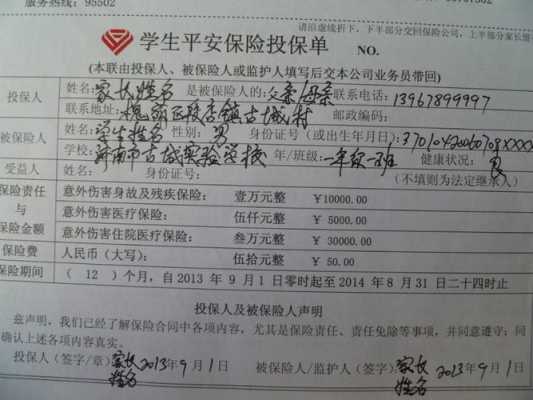 服务热线：95502
请沿虚线折下，下半部分交回保险公司，上半部分家长留
学生平安保险投保单 NO.
(本联由投保人、被保险人或监护人填写后交本公司业务员带回)
投保人 姓名：家长姓名 是被保险人的：父亲母亲 联系电话：13967899997
联系地址：槐荫区段店镇古城村 邮政编码：
被保险人 姓名：学生姓名 性别：男 身份证号（或出生年月日）：
学校：济南市古城实验学校 年/班级：一年级一班 健康状况：良
受益人 姓名： 身份证号： （不填则为法定继承人）
保险责任与保险金额 意外伤害身故及残疾保险： 壹万元整 ￥10000.00
意外伤害医疗保险： 伍仟元整 ￥ 5000.00
意外伤害住院医疗保险： 叁万元整 ￥ 30000.00
保险费 人民币（大写）： 伍拾元整 ￥ 50.00
保险期间 （ 12 ）个月，自 2013 年 9 月 1 日零时起至 2014 年 8 月 31 日二十四时止
投保人及被保险人声明
兹声明，我们已经了解保险合同中各项内容，尤其是保险责任、责任免除等事项，并同意遵守；同
确认上述各项内容真实。
投保人（签字/章）家长姓名 2013年9月1日 被保险人/监护人（签字）家长姓名 2013年9月1日